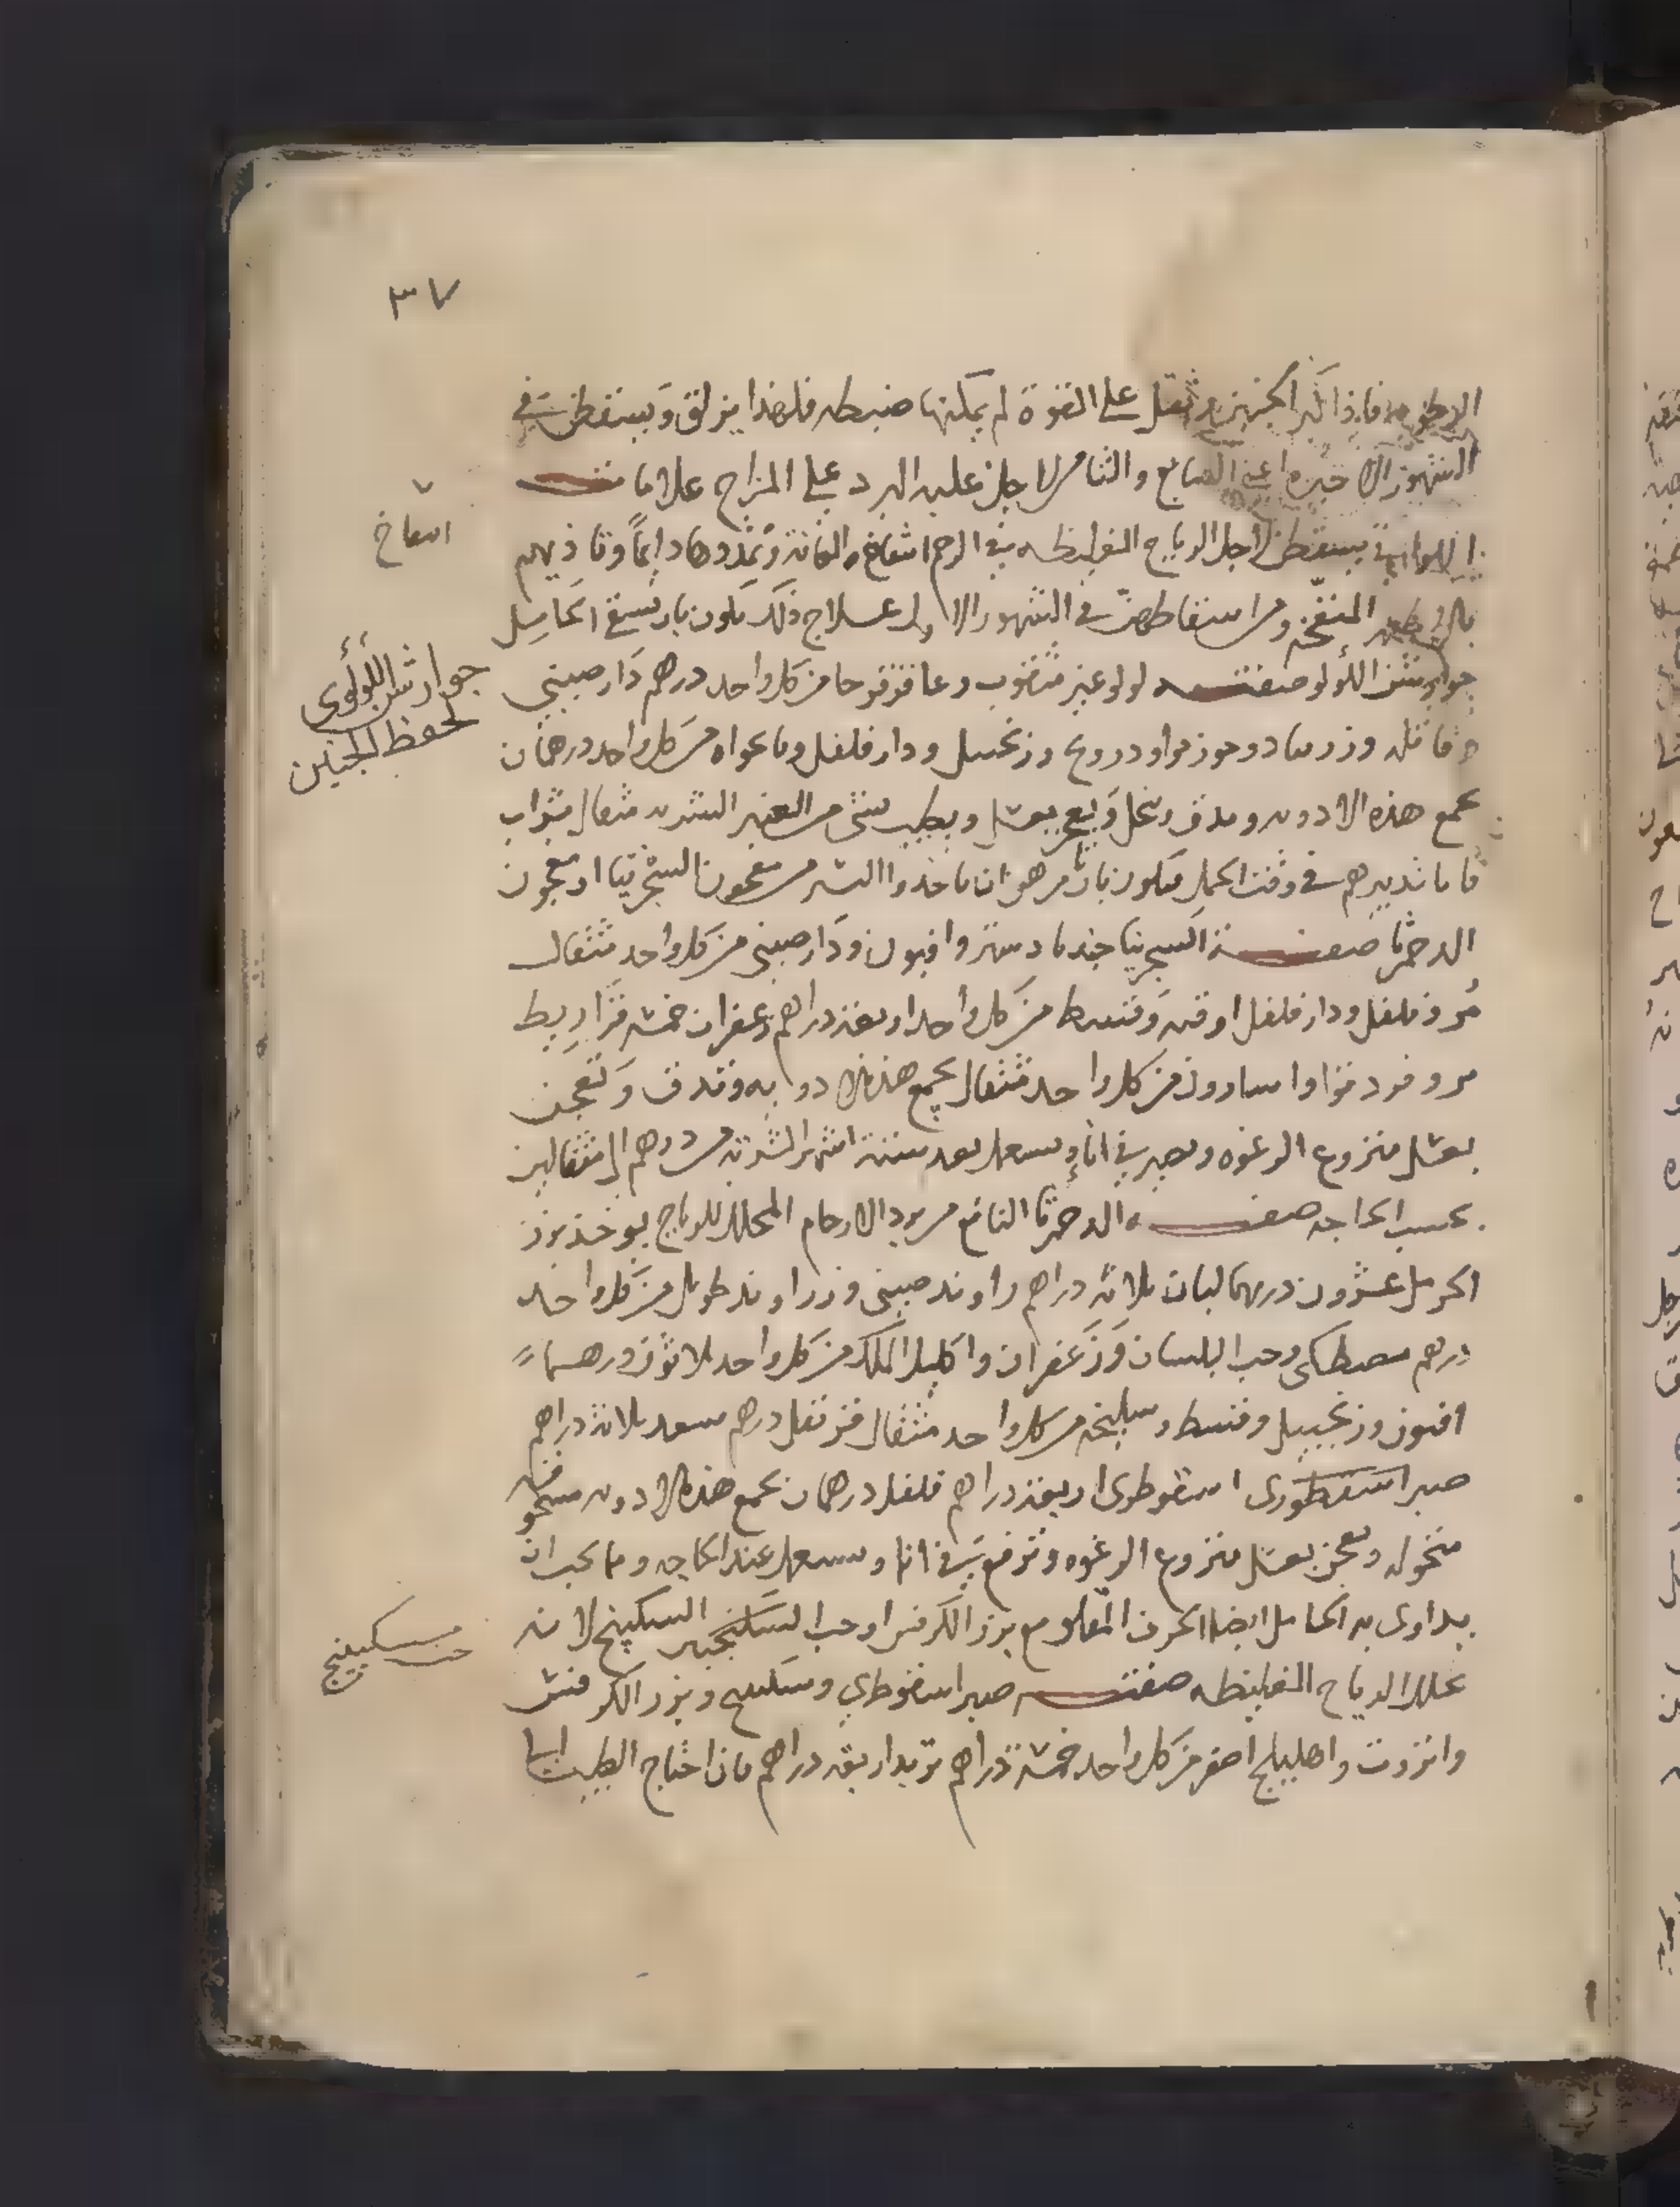 ٣٧
الرطوبه فاذا كبر الجنين وثقل على القوة لم يمكنها ضبطه فلهذا يزلق ويسقطن في
الشهور الاخيره اعني السابع والثامن لاجل غلبه البرد على المزاج علامات
اللواتي يسقطن لاجل الرياح الغليظه في الرحم انتفاخ العانة وتمددها دايماً وتاذيهم
المنفخه ومن اسقاطهن في الشهور الاول علاج ذلك يكون بان تسقى الحامل
جوارشن اللولو صفته لولو غير مثقوب وعاقرقرحا من كل واحد درهم دارصيني
وقاقله وزرنباد وجوزبوا ودرونج وزنجبيل ودار فلفل من كل واحد درهمان
تجمع هذه الادويه وتدق وتنخل ويعجن بعسل ويطيب بشي من العنبر الشربه مثقال بشراب
فاما تدبيرهم في وقت الحمل فيكون بان مرهون ان ياخذوا اليسير من معجون الشجرنيا او معجون
الدحمرثا صفة السجرنيا جندبادستر وافيون ودارصيني من كل واحد مثقال
مُر وفلفل ودار فلفل اوقيه وقسط من كل واحد اربعة دراهم زعفران خمسه قراريط
مر وفو دقوا واسارون من كل واحد مثقال تجمع هذه الادويه وتدق وتعجن
بعسل منزوع الرغوه ويصير في اناءٍ ويستعمل بعد ستة اشهر الشربه من درهم الى مثقالين
بحسب الحاجه صفه الدحمرثا النافع من برد الارحام المحلل للرياح يوخذ بزر
الحرمل عشرون درهما لبان ثلاثة دراهم راوند صيني وزراوند طويل من كل واحد
درهم مصطكى وحب البلسان وزعفران واكليل الملك من كل واحد ثلاثون درهما
افيون وزنجبيل وقسط وسليخه من كل واحد مثقال قرنفل درهم سعد ثلاثة دراهم
صبر اسقطورى اسقوطرى اربعة دراهم فلفل درهمان تجمع هذه الادويه مسحوقه
منخوله وتعجن بعسل منزوع الرغوه وترفع في انا ويستعمل عند الحاجه ومما يجب ان
يداوى به الحامل ايضا الحرف المقلو مع بزر الكرفس او حب السكبينج لانه
يحلل الرياح الغليظه صفته صبر اسقوطري وسكبينج وبزر الكرفس
وانزروت واهليلج اصفر من كل واحد خمسة دراهم تربد اربعة دراهم فان احتاج الطبيب
انتفاخ
جوارش اللؤلؤى
لحفظ الجنين
حب سكبينج